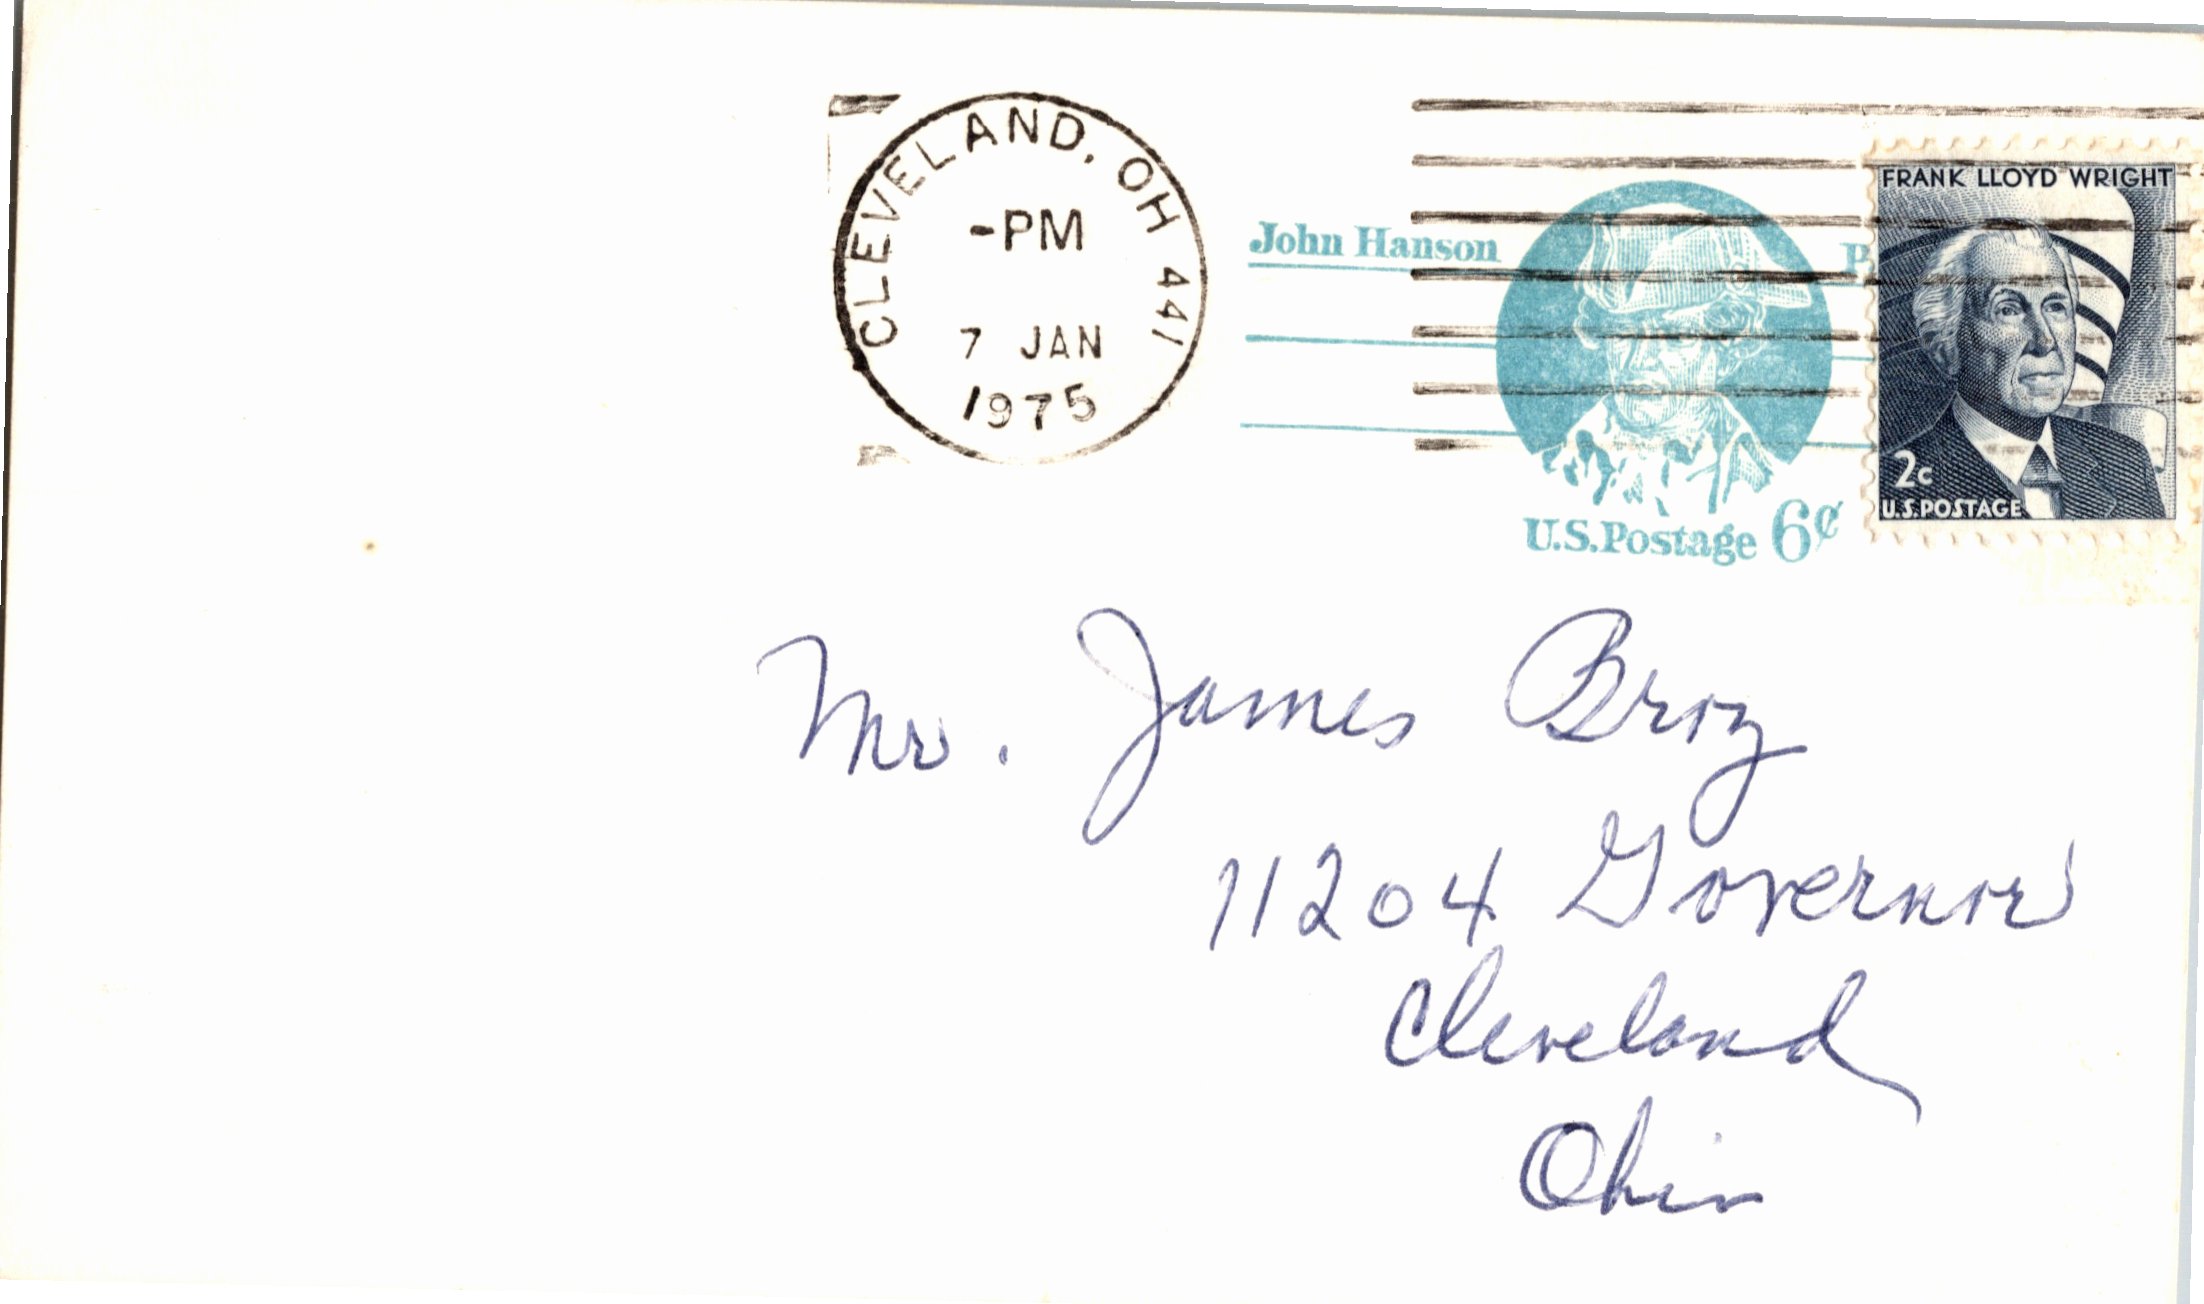 CLEVELAND, OH 441
-PM
7 JAN
1975
John Hanson
U.S.Postage 6¢
FRANK LLOYD WRIGHT
2c
U.S.POSTAGE
Mr. James Broz
11204 Governor
Cleveland
Ohio